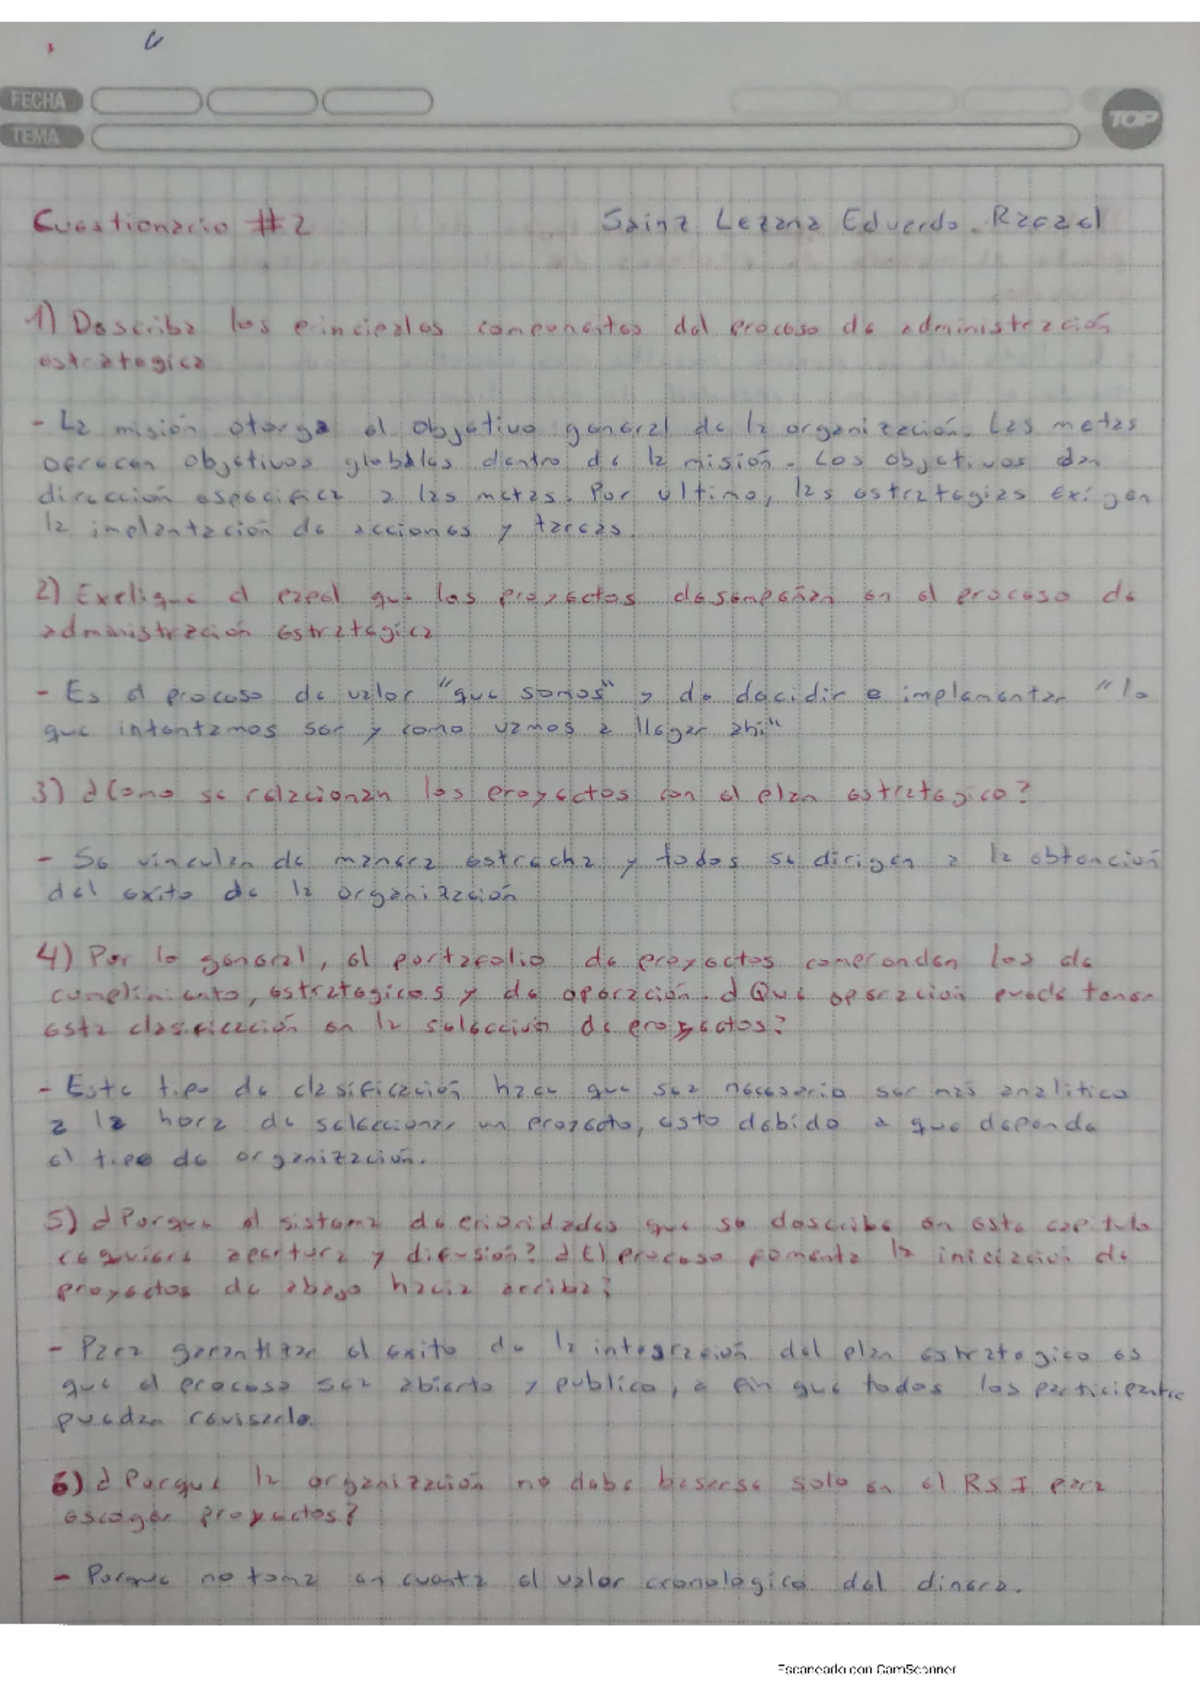 FECHA
TEMA
TOP
Cuestionario #2 Sainz Lezama Eduardo Rafael
1) Describa los principales componentes del proceso de administración
estrategica
- La misión otorga el objetivo general de la organización. Las metas
ofrecen objetivos globales dentro de la misión. Los objetivos dan
dirección especifica a las metas. Por ultimo, las estrategias exigen
la implantación de acciones y tareas.
2) Explique el papel que los proyectos desempeñan en el proceso de
administración estratégica
- Es el proceso de valor "que somos" y de decidir e implementar "lo
que intentamos ser y como vamos a llegar ahi"
3) ¿Como se relacionan los proyectos con el plan estrategico?
- Se vinculan de manera estrecha y todos se dirigen a la obtención
del exito de la organización
4) Por lo general, el portafolio de proyectos comprenden los de
cumplimiento, estrategicos y de operación. ¿Qué operación puede tener
esta clasificación en la selección de proyectos?
- Este tipo de clasificación hace que sea necesario ser más analitico
a la hora de seleccionar un proyecto, esto debido a que depende
el tipo de organización.
5) ¿Porque el sistema de prioridades que se describe en este capitulo
requiere apertura y difusión? ¿El proceso fomenta la iniciación de
proyectos de abajo hacia arriba?
- Para garantizar el exito de la integración del plan estrategico es
que el proceso sea abierto y publico, a fin que todos los participantes
puedan revisarlo.
6) ¿Porque la organización no debe basarse solo en el RSI para
escoger proyectos?
- Porque no toma en cuenta el valor cronologico del dinero.
Escaneado con CamScanner